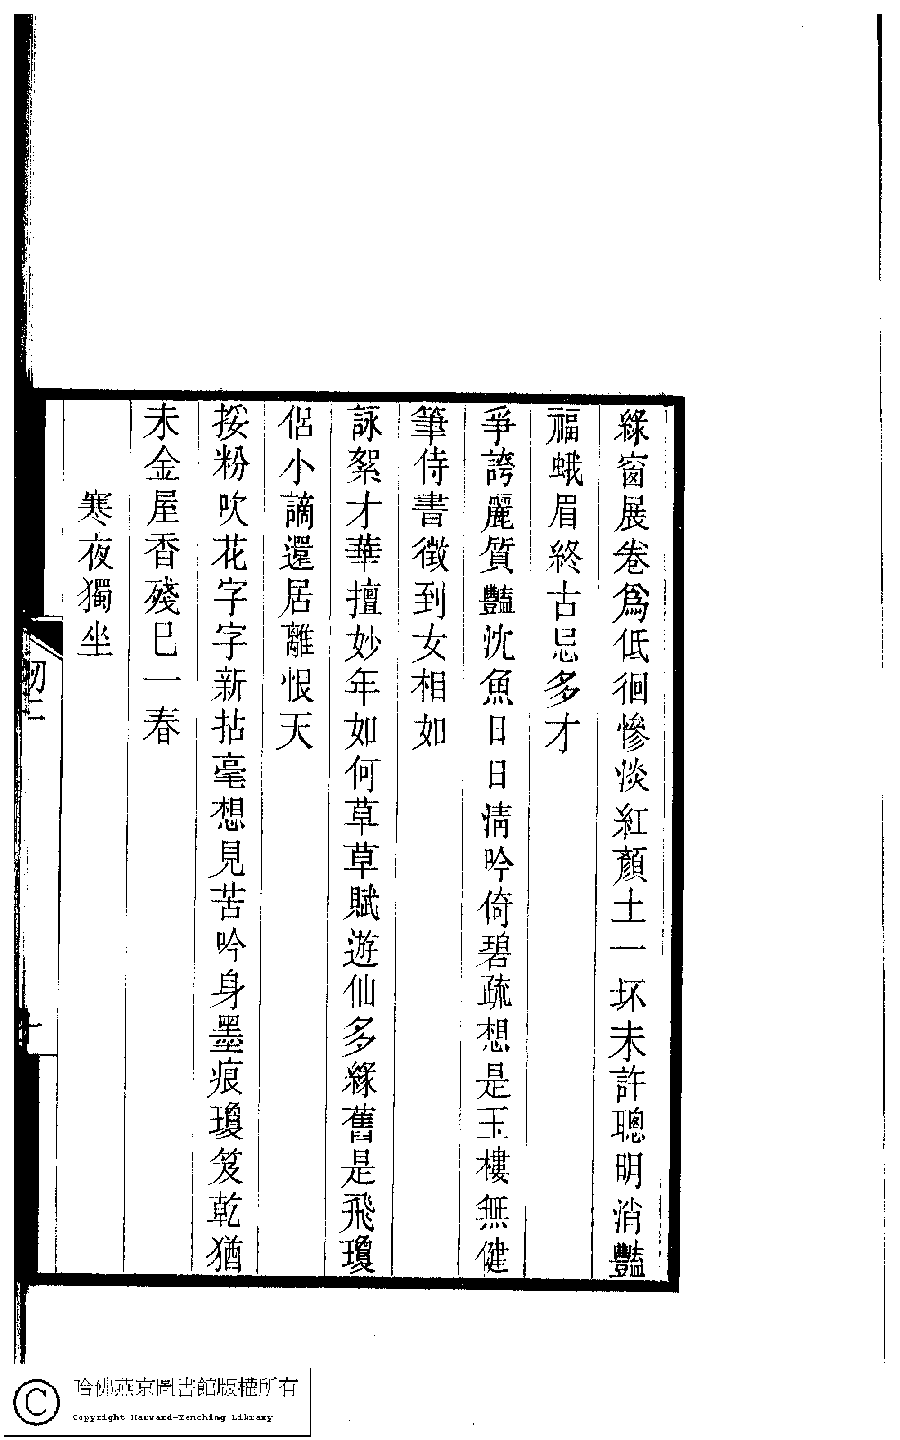 綠窗展卷爲低徊慘淡紅顏土一坏未許聰明消豔
福蛾眉終古忌多才
爭誇麗質豔沈魚日日淸吟倚碧疏想是玉樓無健
筆侍書徵到女相如
詠絮才華擅妙年如何草草賦遊仙多緣舊是飛瓊
侶小謫還居離恨天
挼粉吹花字字新拈毫想見苦吟身墨痕瓊笈乾猶
未金屋香殘已一春
寒夜獨坐
初二
十
哈佛燕京圖書館版權所有
Copyright Harvard-Yenching Library